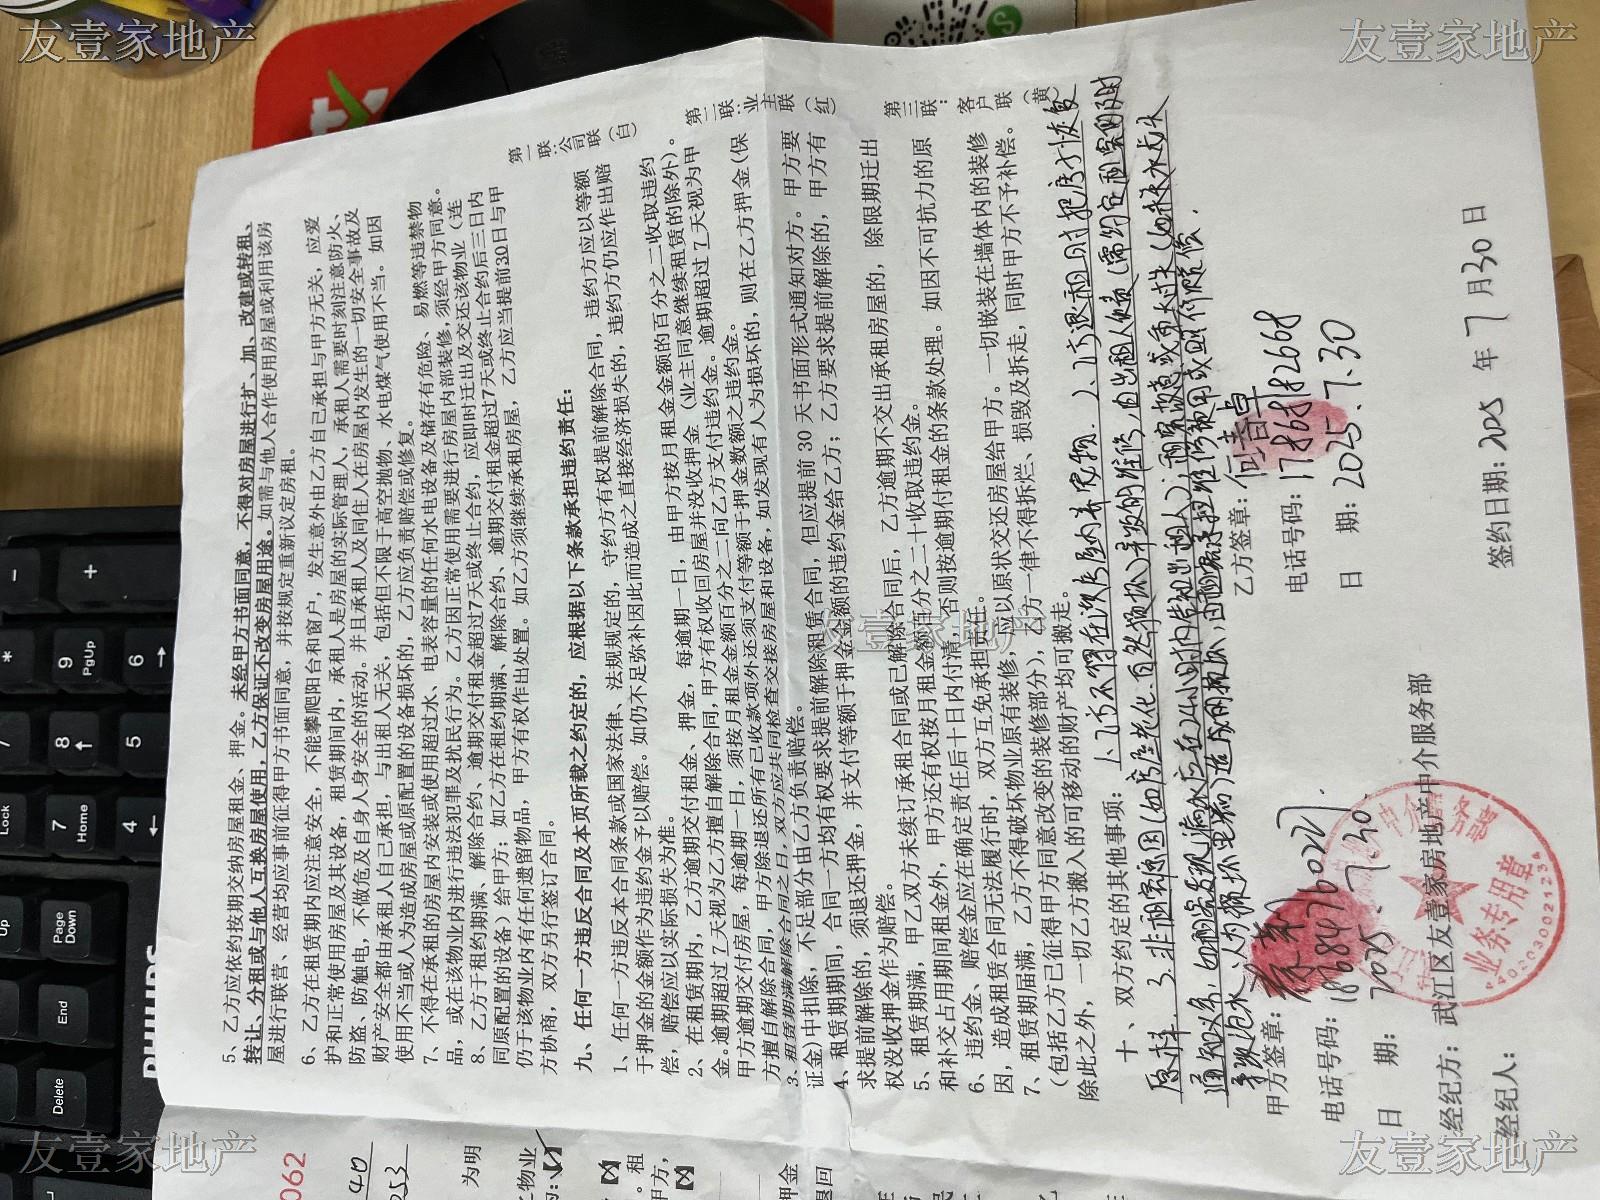 友壹家地产
友壹家地产
5、乙方应依约按期交纳房屋租金、押金。未经甲方书面同意，不得对房屋进行扩、加、改建或转租、
转让、分租或与他人互换房屋使用，乙方保证不改变房屋用途。如需与他人合作使用房屋或利用该房
屋进行联营、经营均应事前征得甲方书面同意，并按规定重新议定房租。
6、乙方在租赁期内应注意安全，不能攀爬阳台和窗户，发生意外由乙方自己承担与甲方无关，应爱
护和正常使用房屋及其设备，租赁期间内，承租人是房屋的实际管理人，承租人需要时刻注意防火、
防盗、防触电，不做危及自身人身安全的活动。并且承租人及同住人在房屋内发生的一切安全事故及
财产安全都由承租人自己承担，与出租人无关，包括但不限于高空抛物、水电煤气使用不当。如因
使用不当或人为造成房屋或原配置的设备损坏的，乙方应负责赔偿或修复。
7、不得在承租的房屋内安装或使用超过水、电表容量的任何水电设备及储存有危险、易燃等违禁物
品，或在该物业内进行违法犯罪及扰民行为。乙方因正常使用需要进行房屋内部装修，须经甲方同意。
8、乙方于租约期满、解除合约、逾期交付租金超过7天或终止合约，应即时迁出及交还该物业（连
同原配置的设备）给甲方；如乙方在租约期满、解除合约、逾期交付租金超过7天或终止合约后三日内
仍于该物业内有任何遗留物品，甲方有权作出处置。如乙方须继续承租房屋，乙方应当提前30日与甲
方协商，双方另行签订合同。
第一联：公司联（白）
九、任何一方违反合同及本页所载之约定的，应根据以下条款承担违约责任：
1、任何一方违反本合同条款或国家法律、法规规定的，守约方有权提前解除合同，违约方应以等额
于押金的金额作为违约金予以赔偿。如仍不足弥补因此而造成之直接经济损失的，违约方仍应作出赔
偿，赔偿应以实际损失为准。
2、在租赁期内，乙方逾期交付租金、押金，每逾期一日，由甲方按月租金金额的百分之二收取违约
金。逾期超过7天视为乙方擅自解除合同，甲方有权收回房屋并没收押金（业主同意继续租赁的除外）。
甲方逾期交付房屋，每逾期一日，须按月租金金额百分之二向乙方支付违约金。逾期超过7天视为甲
方擅自解除合同，甲方除退还所有已收款项外还须支付等额于押金数额之违约金。
第二联：业主联（红）
3、租赁期满解除合同之日，双方应共同检查交接房屋和设备，如发现有人为损坏的，则在乙方押金（保
证金）中扣除，不足部分由乙方负责赔偿。
4、租赁期期间，合同一方均有权要求提前解除租赁合同，但应提前30天书面形式通知对方。甲方要
求提前解除的，须退还押金，并支付等额于押金金额的违约金给乙方；乙方要求提前解除的，甲方有
权没收押金作为赔偿。
5、租赁期满，甲乙双方未续订承租合同或已解除合同后，乙方逾期不交出承租房屋的，除限期迁出
和补交占用期间租金外，甲方还有权按月租金额百分之二十收取违约金。
6、违约金、赔偿金应在确定责任后十日内付清，否则按逾期付租金的条款处理。如因不可抗力的原
因，造成租赁合同无法履行时，双方互免承担责任。
7、租赁期届满，乙方不得破坏物业原有装修，应以原状交还房屋给甲方。一切嵌装在墙体内的装修
（包括乙方已征得甲方同意改变的装修部分），乙方一律不得拆烂、损毁及拆走，同时甲方不予补偿。
除此之外，一切乙方搬入的可移动的财产均可搬走。
第三联：客户联（黄）
十、双方约定的其他事项：1.乙方不得在该房屋内养宠物.2.乙方退租时把房子恢复
原样.3.非租客原因(如房屋老化.自然损坏)导致的维修.由出租人负责(需约定租客的及时
通知义务，如租客发现漏水应在24小时内告知出租人)；租客故意或重大过失(如未关水龙头
导致泡水.人为损坏电器)造成的损坏.由租客承担维修费用或照价赔偿.
甲方签章：
乙方签章：何春卓
电话号码：18684760227
电话号码：17868182668
日 期：2025.7.30.
日 期：2025.7.30
经纪方：武江区友壹家房地产中介服务部
经纪人：
签约日期：2025 年 7 月 30 日
业务专用章
062
40
053
为明
友壹家地产
友壹家地产
友壹家地产